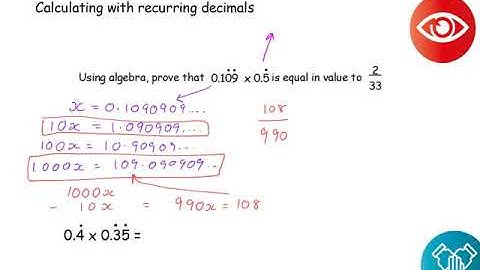 Calculating with recurring decimals
Using algebra, prove that 0.10̇9̇ x 0.5̇ is equal in value to 2/33
x = 0.1090909....
10x = 1.090909....
108/990
100x = 10.90909....
1000x = 109.090909...
1000x
- 10x = 990x = 108
0.4̇ x 0.3̇5̇ =